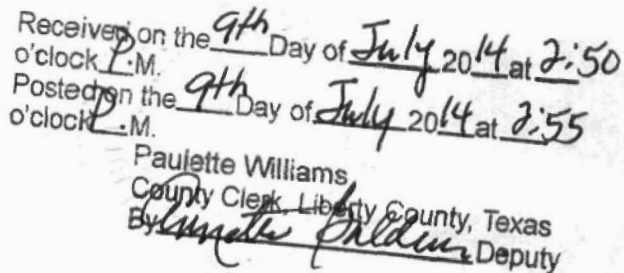 Received on the 9th Day of July 2014 at 2:50
o'clock P.M.
Posted on the 9th Day of July 2014 at 2:55
o'clock P.M.
Paulette Williams
County Clerk, Liberty County, Texas
By Deputy